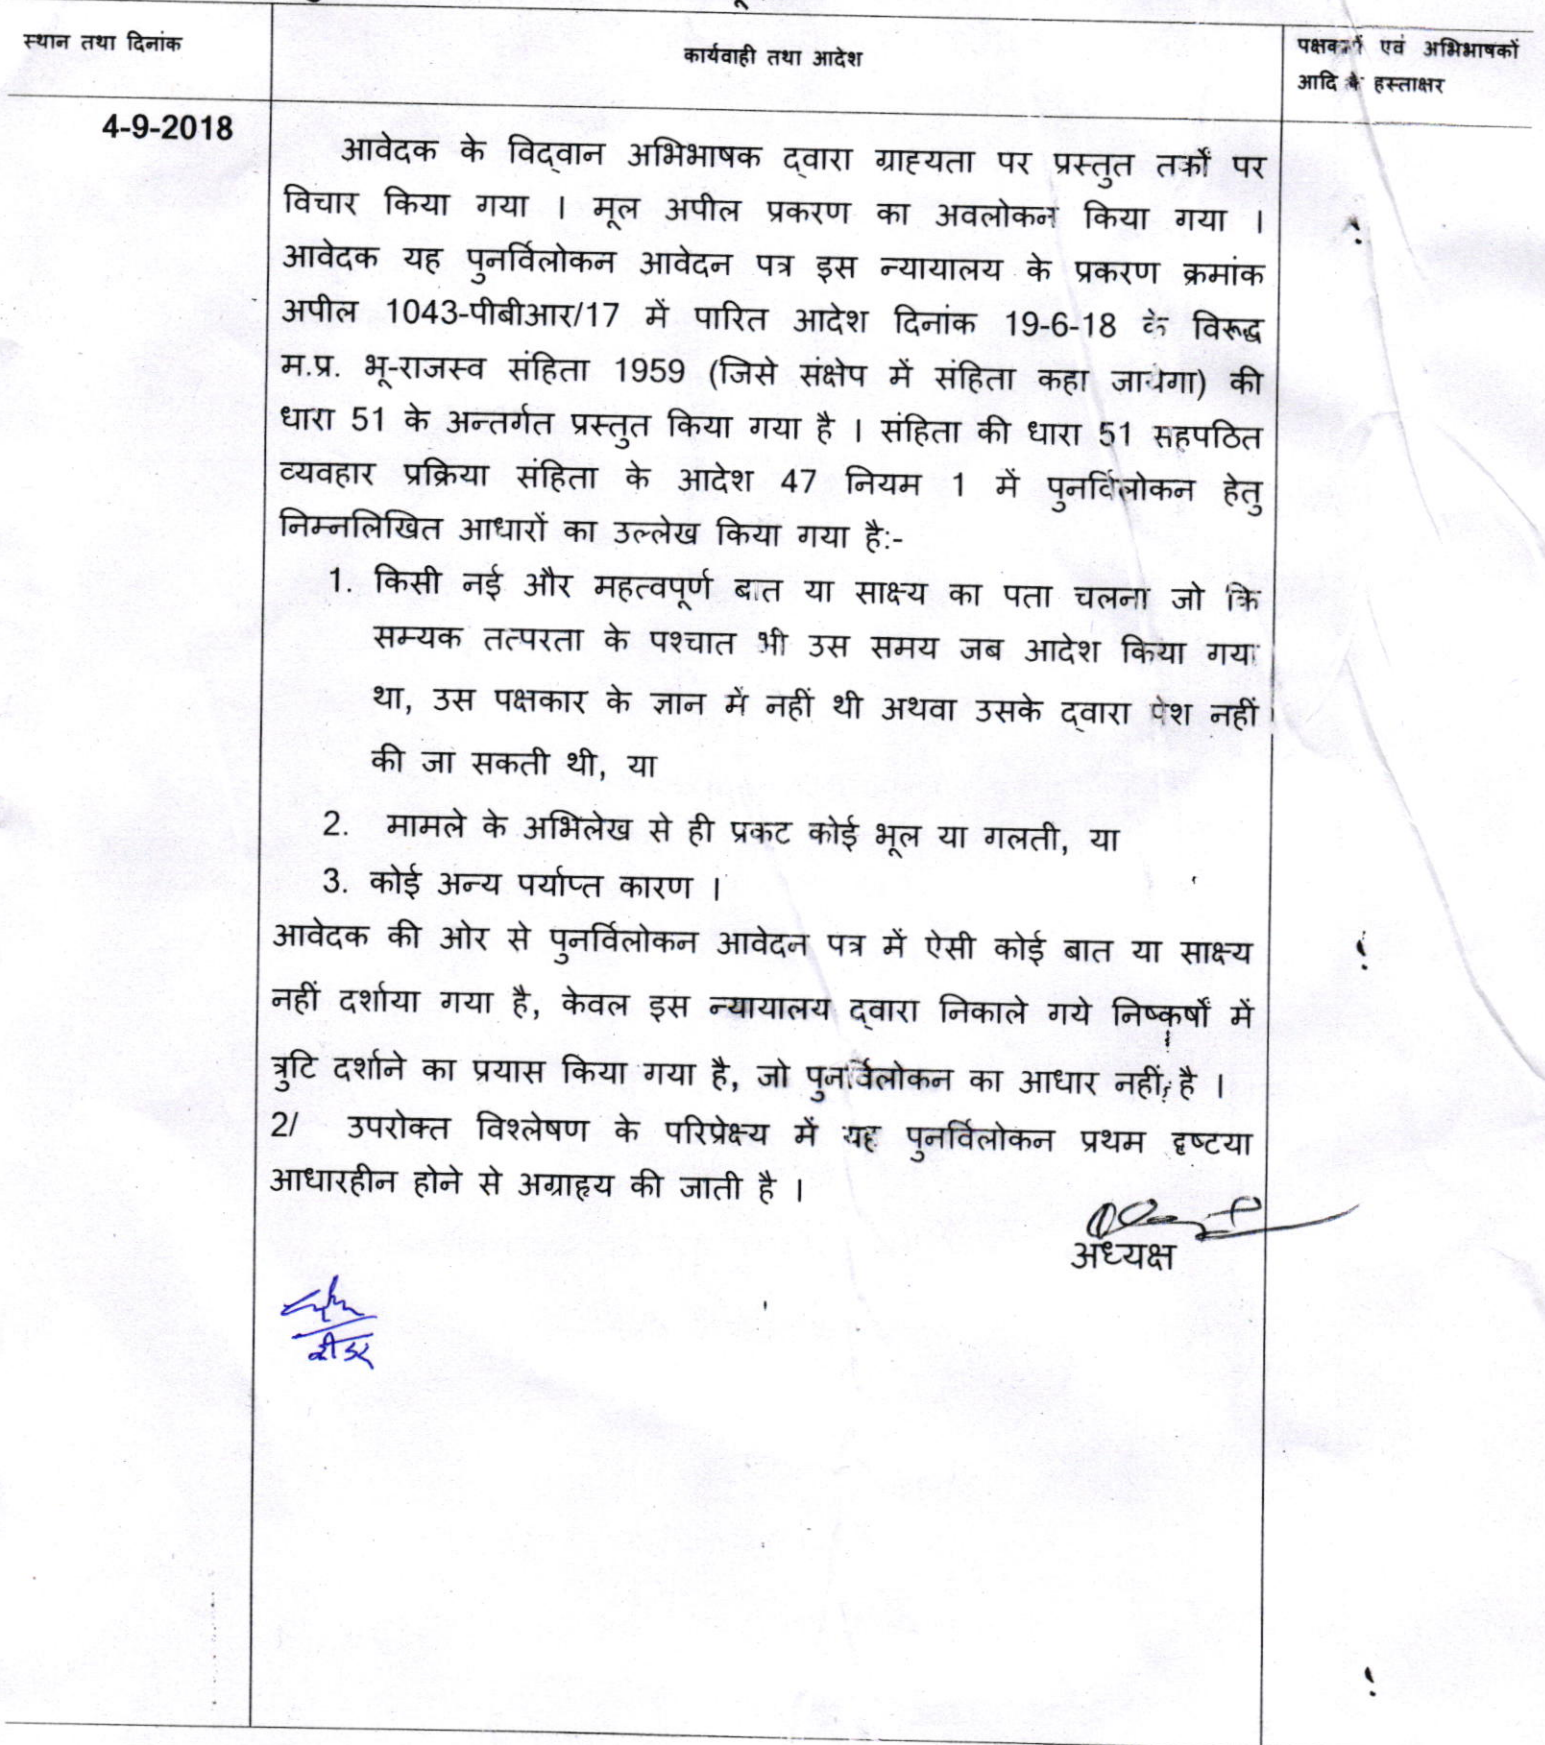 स्थान तथा दिनांक
कार्यवाही तथा आदेश
पक्षकारों एवं अभिभाषकों
आदि के हस्ताक्षर
4-9-2018
आवेदक के विद्वान अभिभाषक द्वारा ग्राह्यता पर प्रस्तुत तर्कों पर
विचार किया गया । मूल अपील प्रकरण का अवलोकन किया गया ।
आवेदक यह पुनर्विलोकन आवेदन पत्र इस न्यायालय के प्रकरण क्रमांक
अपील 1043-पीबीआर/17 में पारित आदेश दिनांक 19-6-18 के विरूद्ध
म.प्र. भू-राजस्व संहिता 1959 (जिसे संक्षेप में संहिता कहा जायेगा) की
धारा 51 के अन्तर्गत प्रस्तुत किया गया है । संहिता की धारा 51 सहपठित
व्यवहार प्रक्रिया संहिता के आदेश 47 नियम 1 में पुनर्विलोकन हेतु
निम्नलिखित आधारों का उल्लेख किया गया है:-
1. किसी नई और महत्वपूर्ण बात या साक्ष्य का पता चलना जो कि
सम्यक तत्परता के पश्चात भी उस समय जब आदेश किया गया
था, उस पक्षकार के ज्ञान में नहीं थी अथवा उसके द्वारा पेश नहीं
की जा सकती थी, या
2. मामले के अभिलेख से ही प्रकट कोई भूल या गलती, या
3. कोई अन्य पर्याप्त कारण ।
आवेदक की ओर से पुनर्विलोकन आवेदन पत्र में ऐसी कोई बात या साक्ष्य
नहीं दर्शाया गया है, केवल इस न्यायालय द्वारा निकाले गये निष्कर्षों में
त्रुटि दर्शाने का प्रयास किया गया है, जो पुनर्विलोकन का आधार नहीं है ।
2/ उपरोक्त विश्लेषण के परिप्रेक्ष्य में यह पुनर्विलोकन प्रथम दृष्टया
आधारहीन होने से अग्राह्य की जाती है ।
अध्यक्ष
रीडर